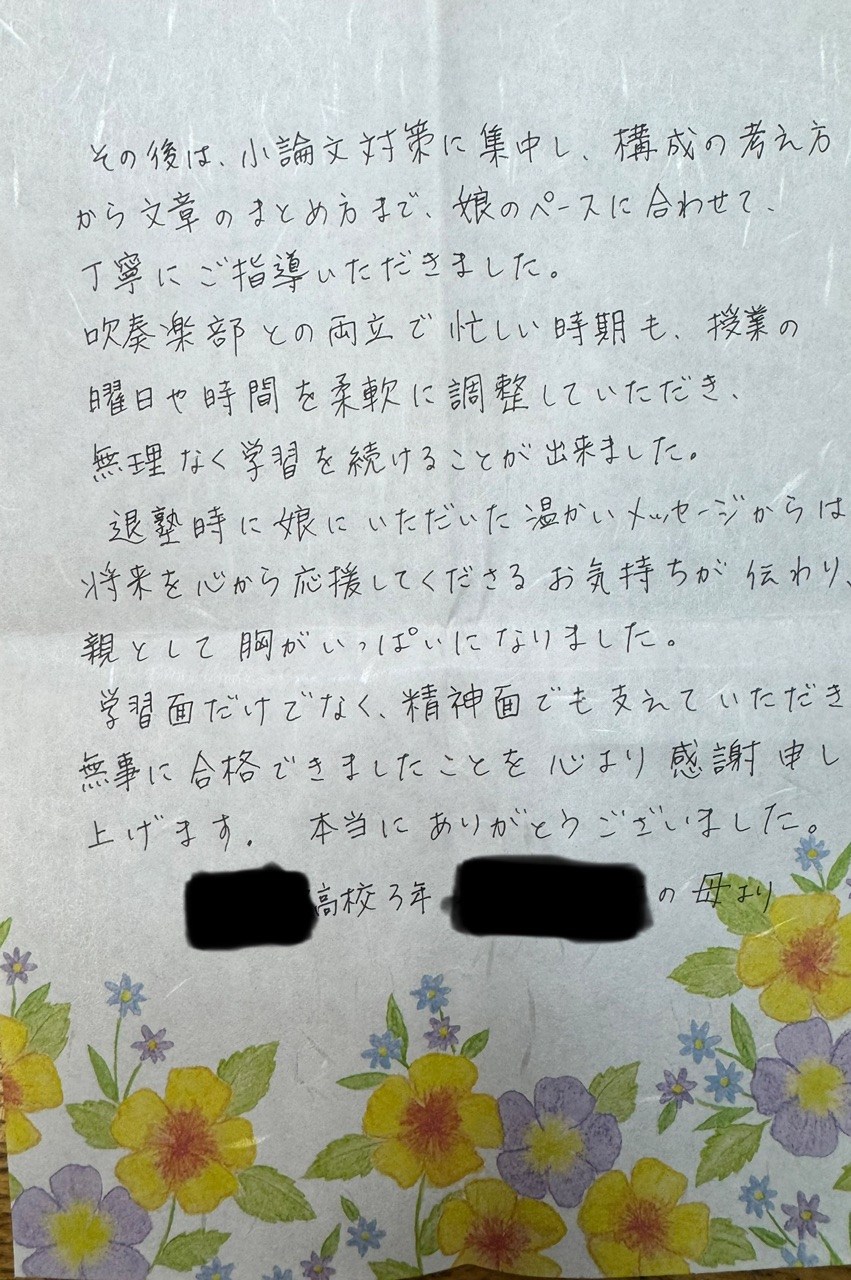 その後は、小論文対策に集中し、構成の考え方
から文章のまとめ方まで、娘のペースに合わせて、
丁寧にご指導いただきました。
吹奏楽部との両立で忙しい時期も、授業の
曜日や時間を柔軟に調整していただき、
無理なく学習を続けることが出来ました。
退塾時に娘にいただいた温かいメッセージからは
将来を心から応援してくださるお気持ちが伝わり、
親として胸がいっぱいになりました。
学習面だけでなく、精神面でも支えていただき
無事に合格できましたことを心より感謝申し
上げます。 本当にありがとうございました。
高校3年 の母より